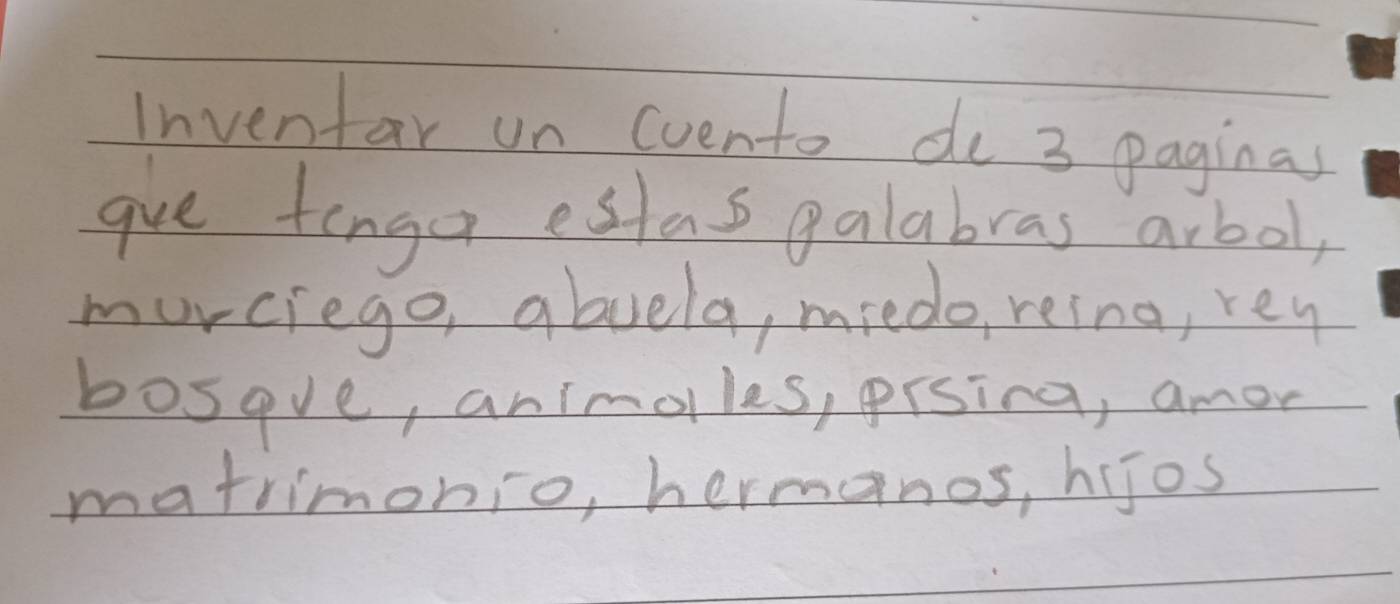 Inventar un cuento de 3 paginas
que tenga estas palabras arbol,
murciego, abuela, miedo, reina, rey
bosque, animales, pisina, amor
matrimonio, hermanos, hijos